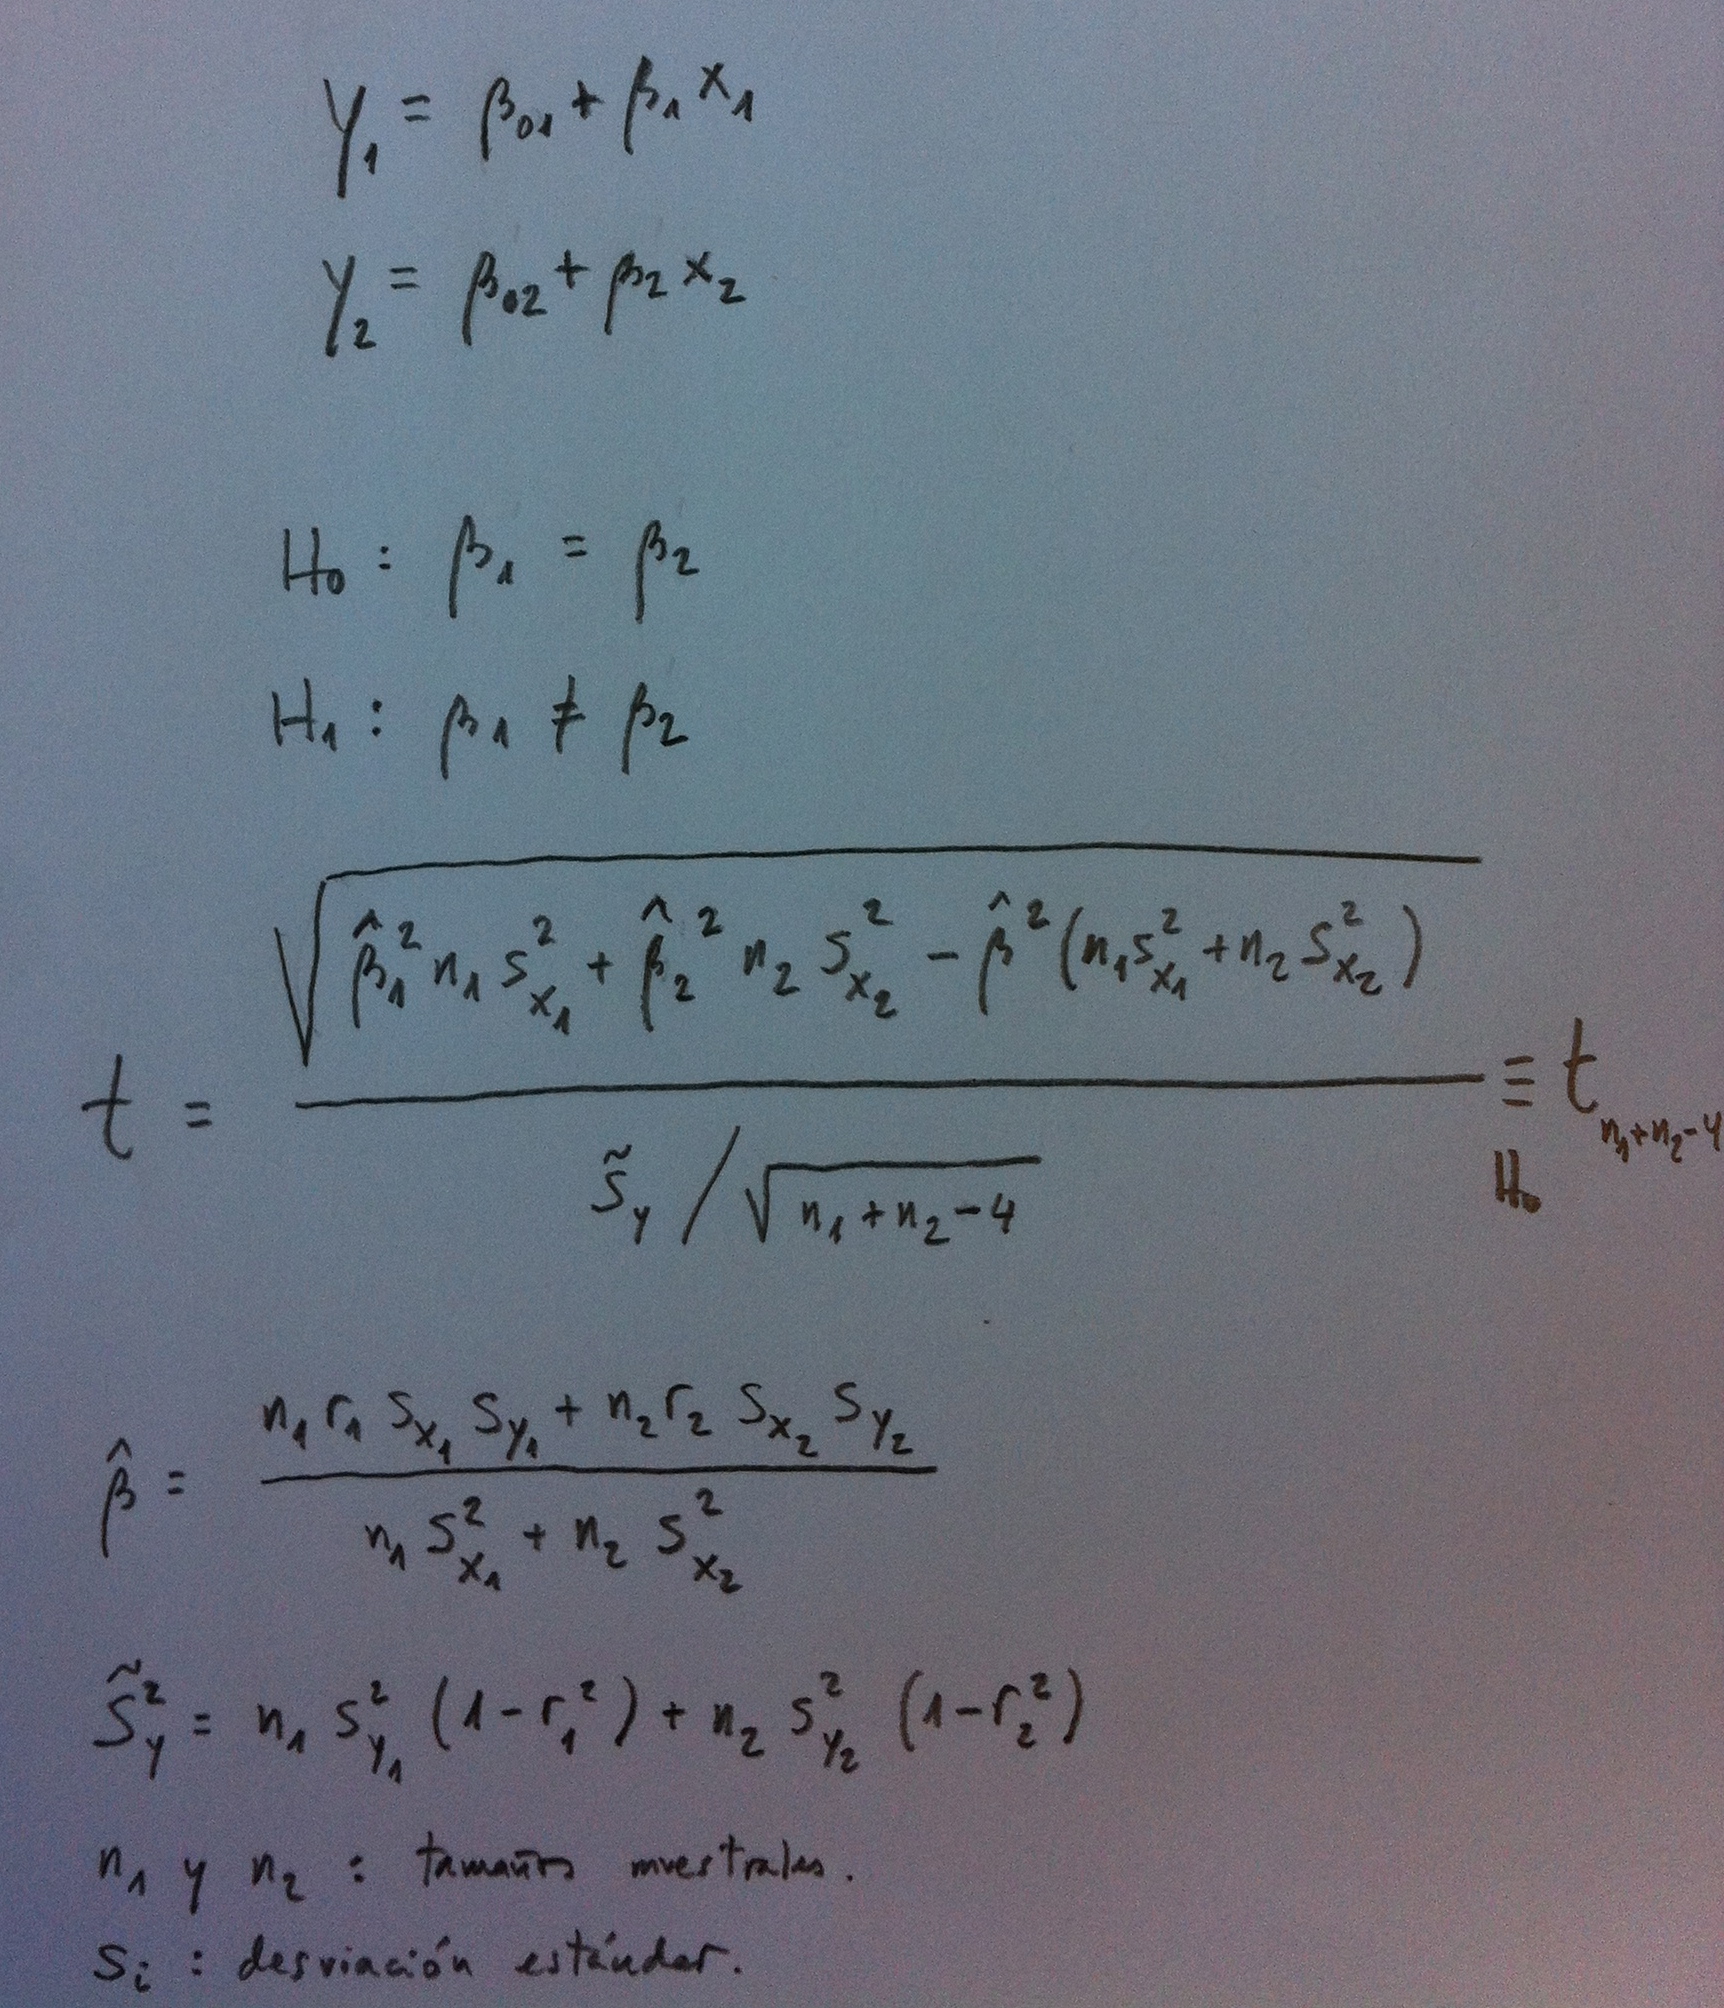 y₁ = β₀₁ + β₁ x₁
y₂ = β₀₂ + β₂ x₂
H₀ : β₁ = β₂
H₁ : β₁ ≠ β₂
t = √(β̂₁² n₁ s²ₓ₁ + β̂₂² n₂ s²ₓ₂ − β̂² (n₁ s²ₓ₁ + n₂ s²ₓ₂)) / (s̃_y / √(n₁ + n₂ − 4)) ≡ t_{n₁+n₂−4}
H₀
β̂ = (n₁ r₁ sₓ₁ s_y₁ + n₂ r₂ sₓ₂ s_y₂) / (n₁ s²ₓ₁ + n₂ s²ₓ₂)
s̃²_y = n₁ s²_y₁ (1 − r₁²) + n₂ s²_y₂ (1 − r₂²)
n₁ y n₂ : tamaños muestrales.
sᵢ : desviación estándar.